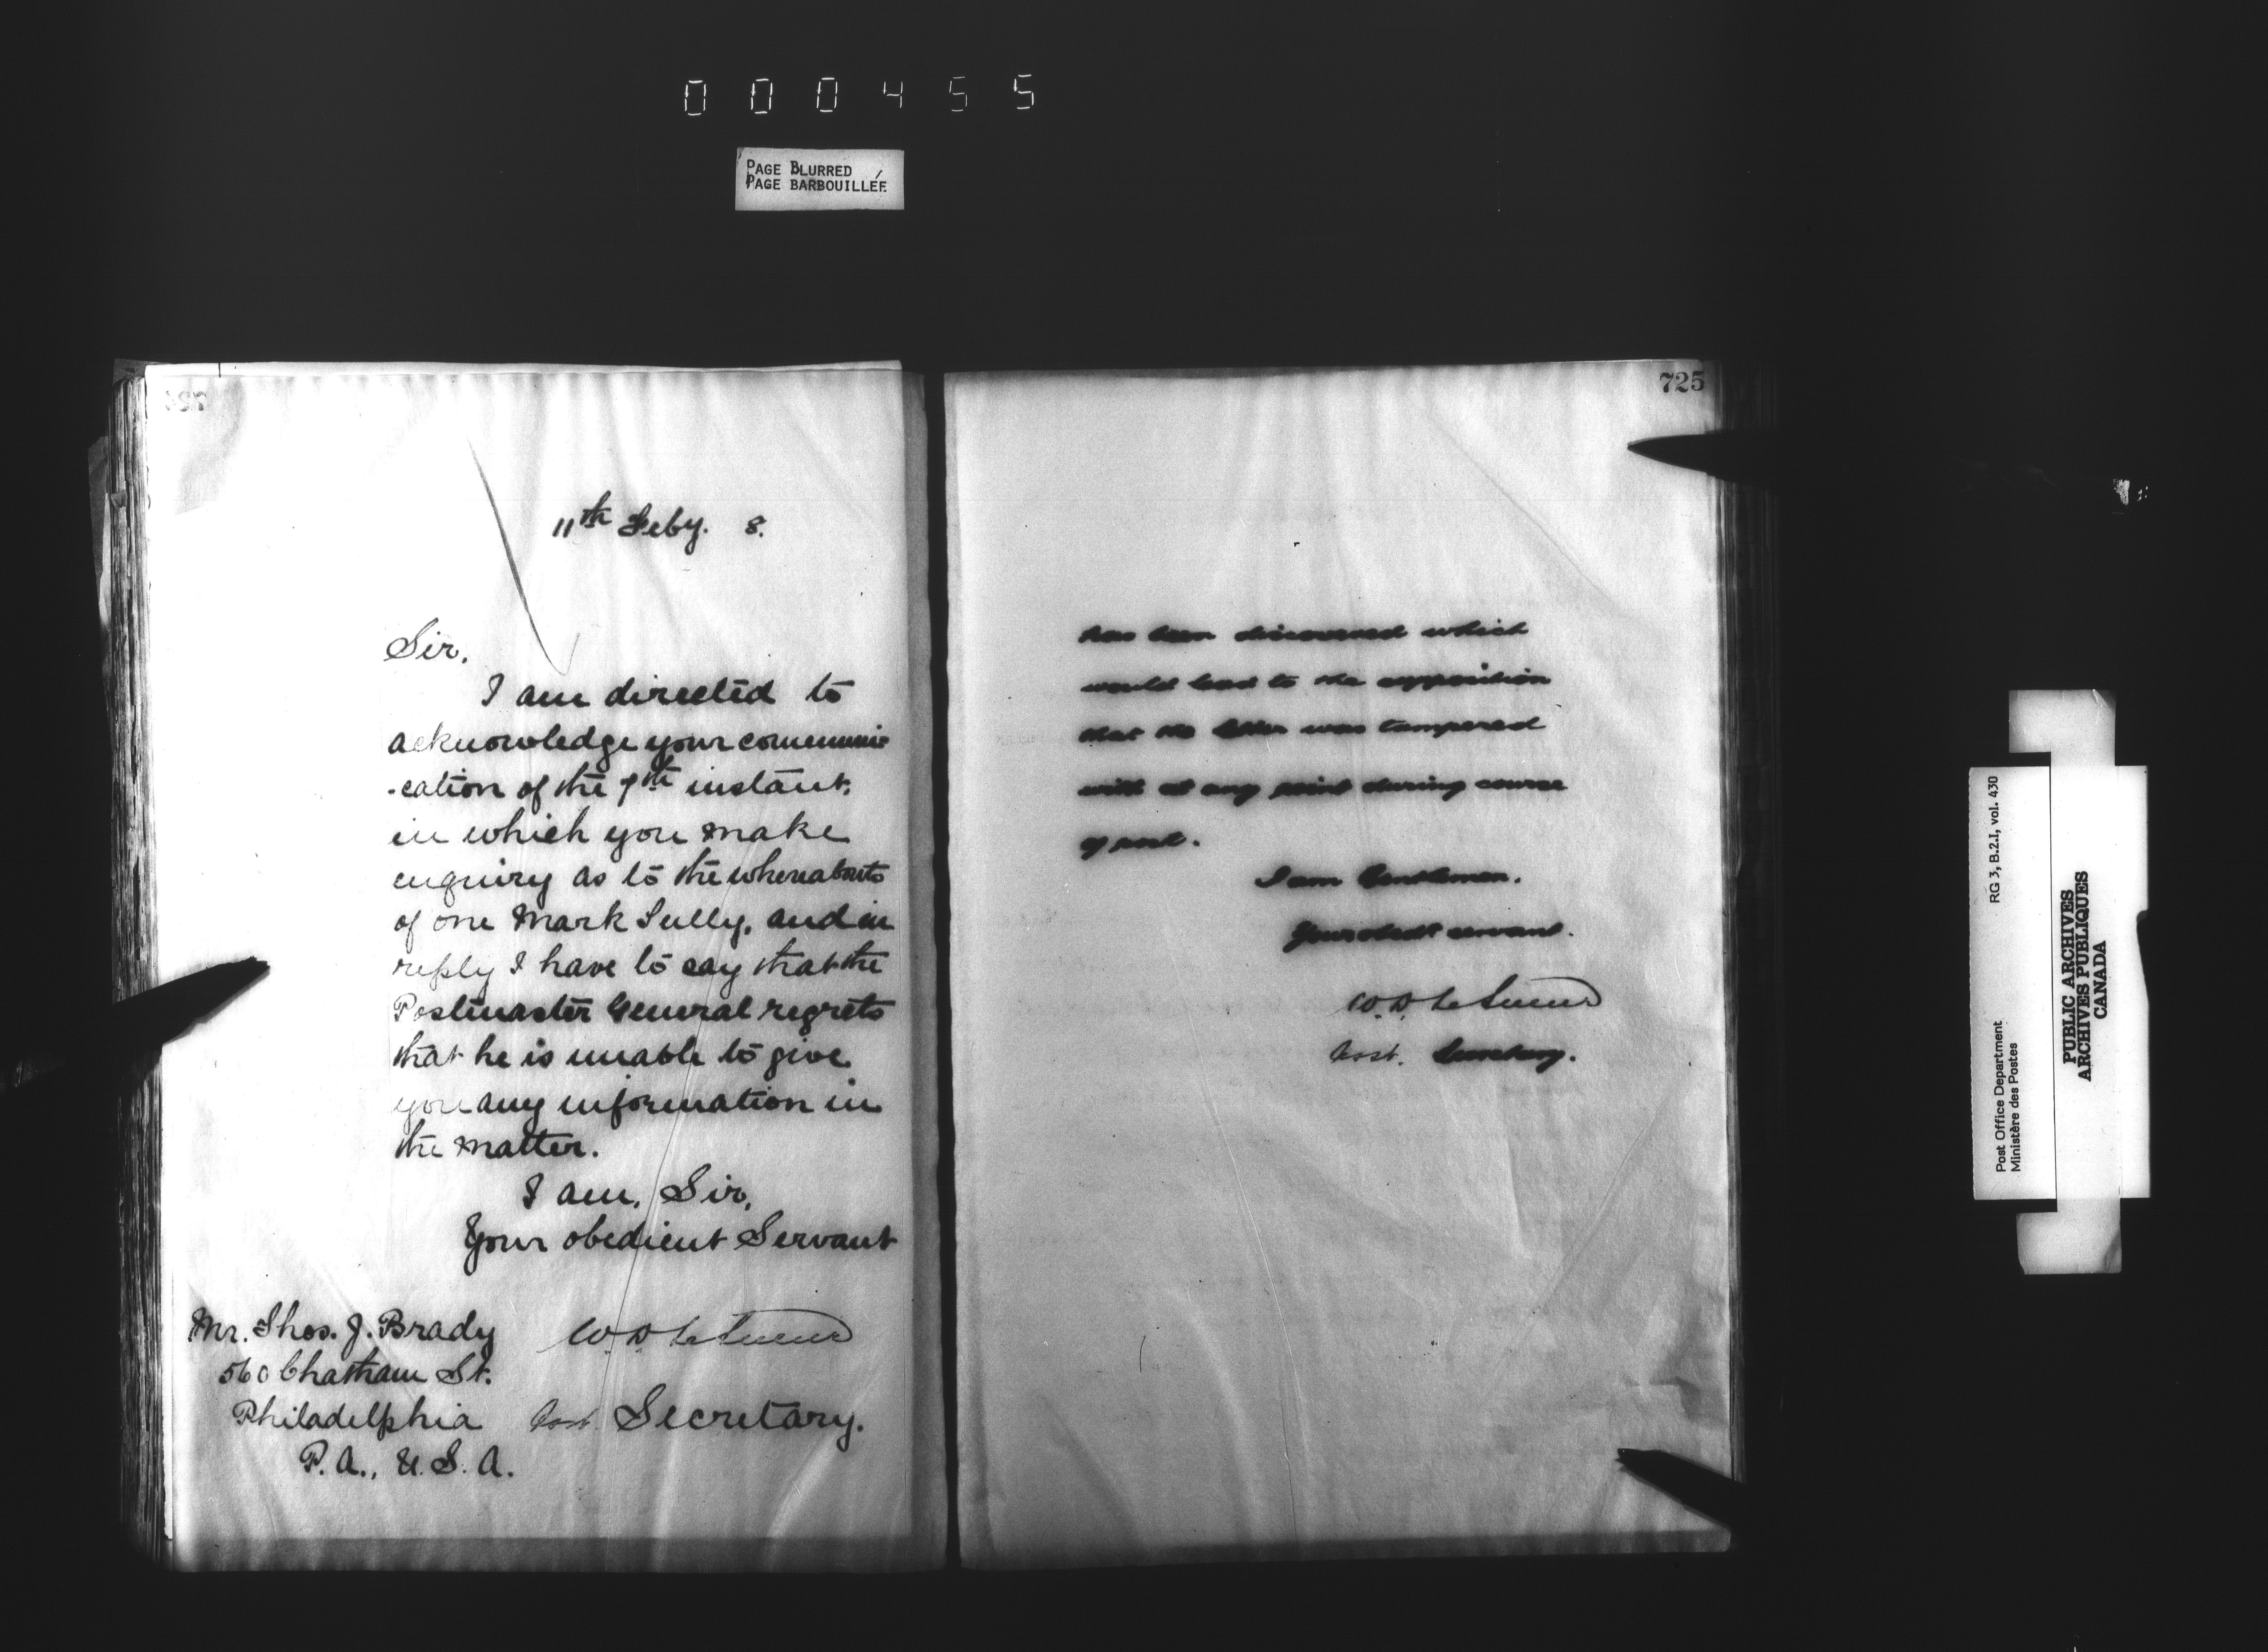 000455
PAGE BLURRED
PAGE BARBOUILLÉE
11th Feby. 8.
Sir,
I am directed to
acknowledge your communi
-cation of the 7th instant,
in which you make
enquiry as to the whereabouts
of one Mark Sully, and in
reply I have to say that the
Postmaster General regrets
that he is unable to give
you any information in
the matter.
I am, Sir,
Your obedient Servant
W. D. LeSueur
Asst. Secretary.
Mr. Thos. J. Brady
560 Chatham St.
Philadelphia
P.A., U.S.A.
725
has been discovered which
would lead to the supposition
that the letter was tampered
with at any point during course
of post.
I am Gentlemen,
Your obedt servant.
W. D. LeSueur
Asst. Secretary.
Post Office Department
Ministère des Postes
RG 3, B.2.I, vol. 430
PUBLIC ARCHIVES
ARCHIVES PUBLIQUES
CANADA